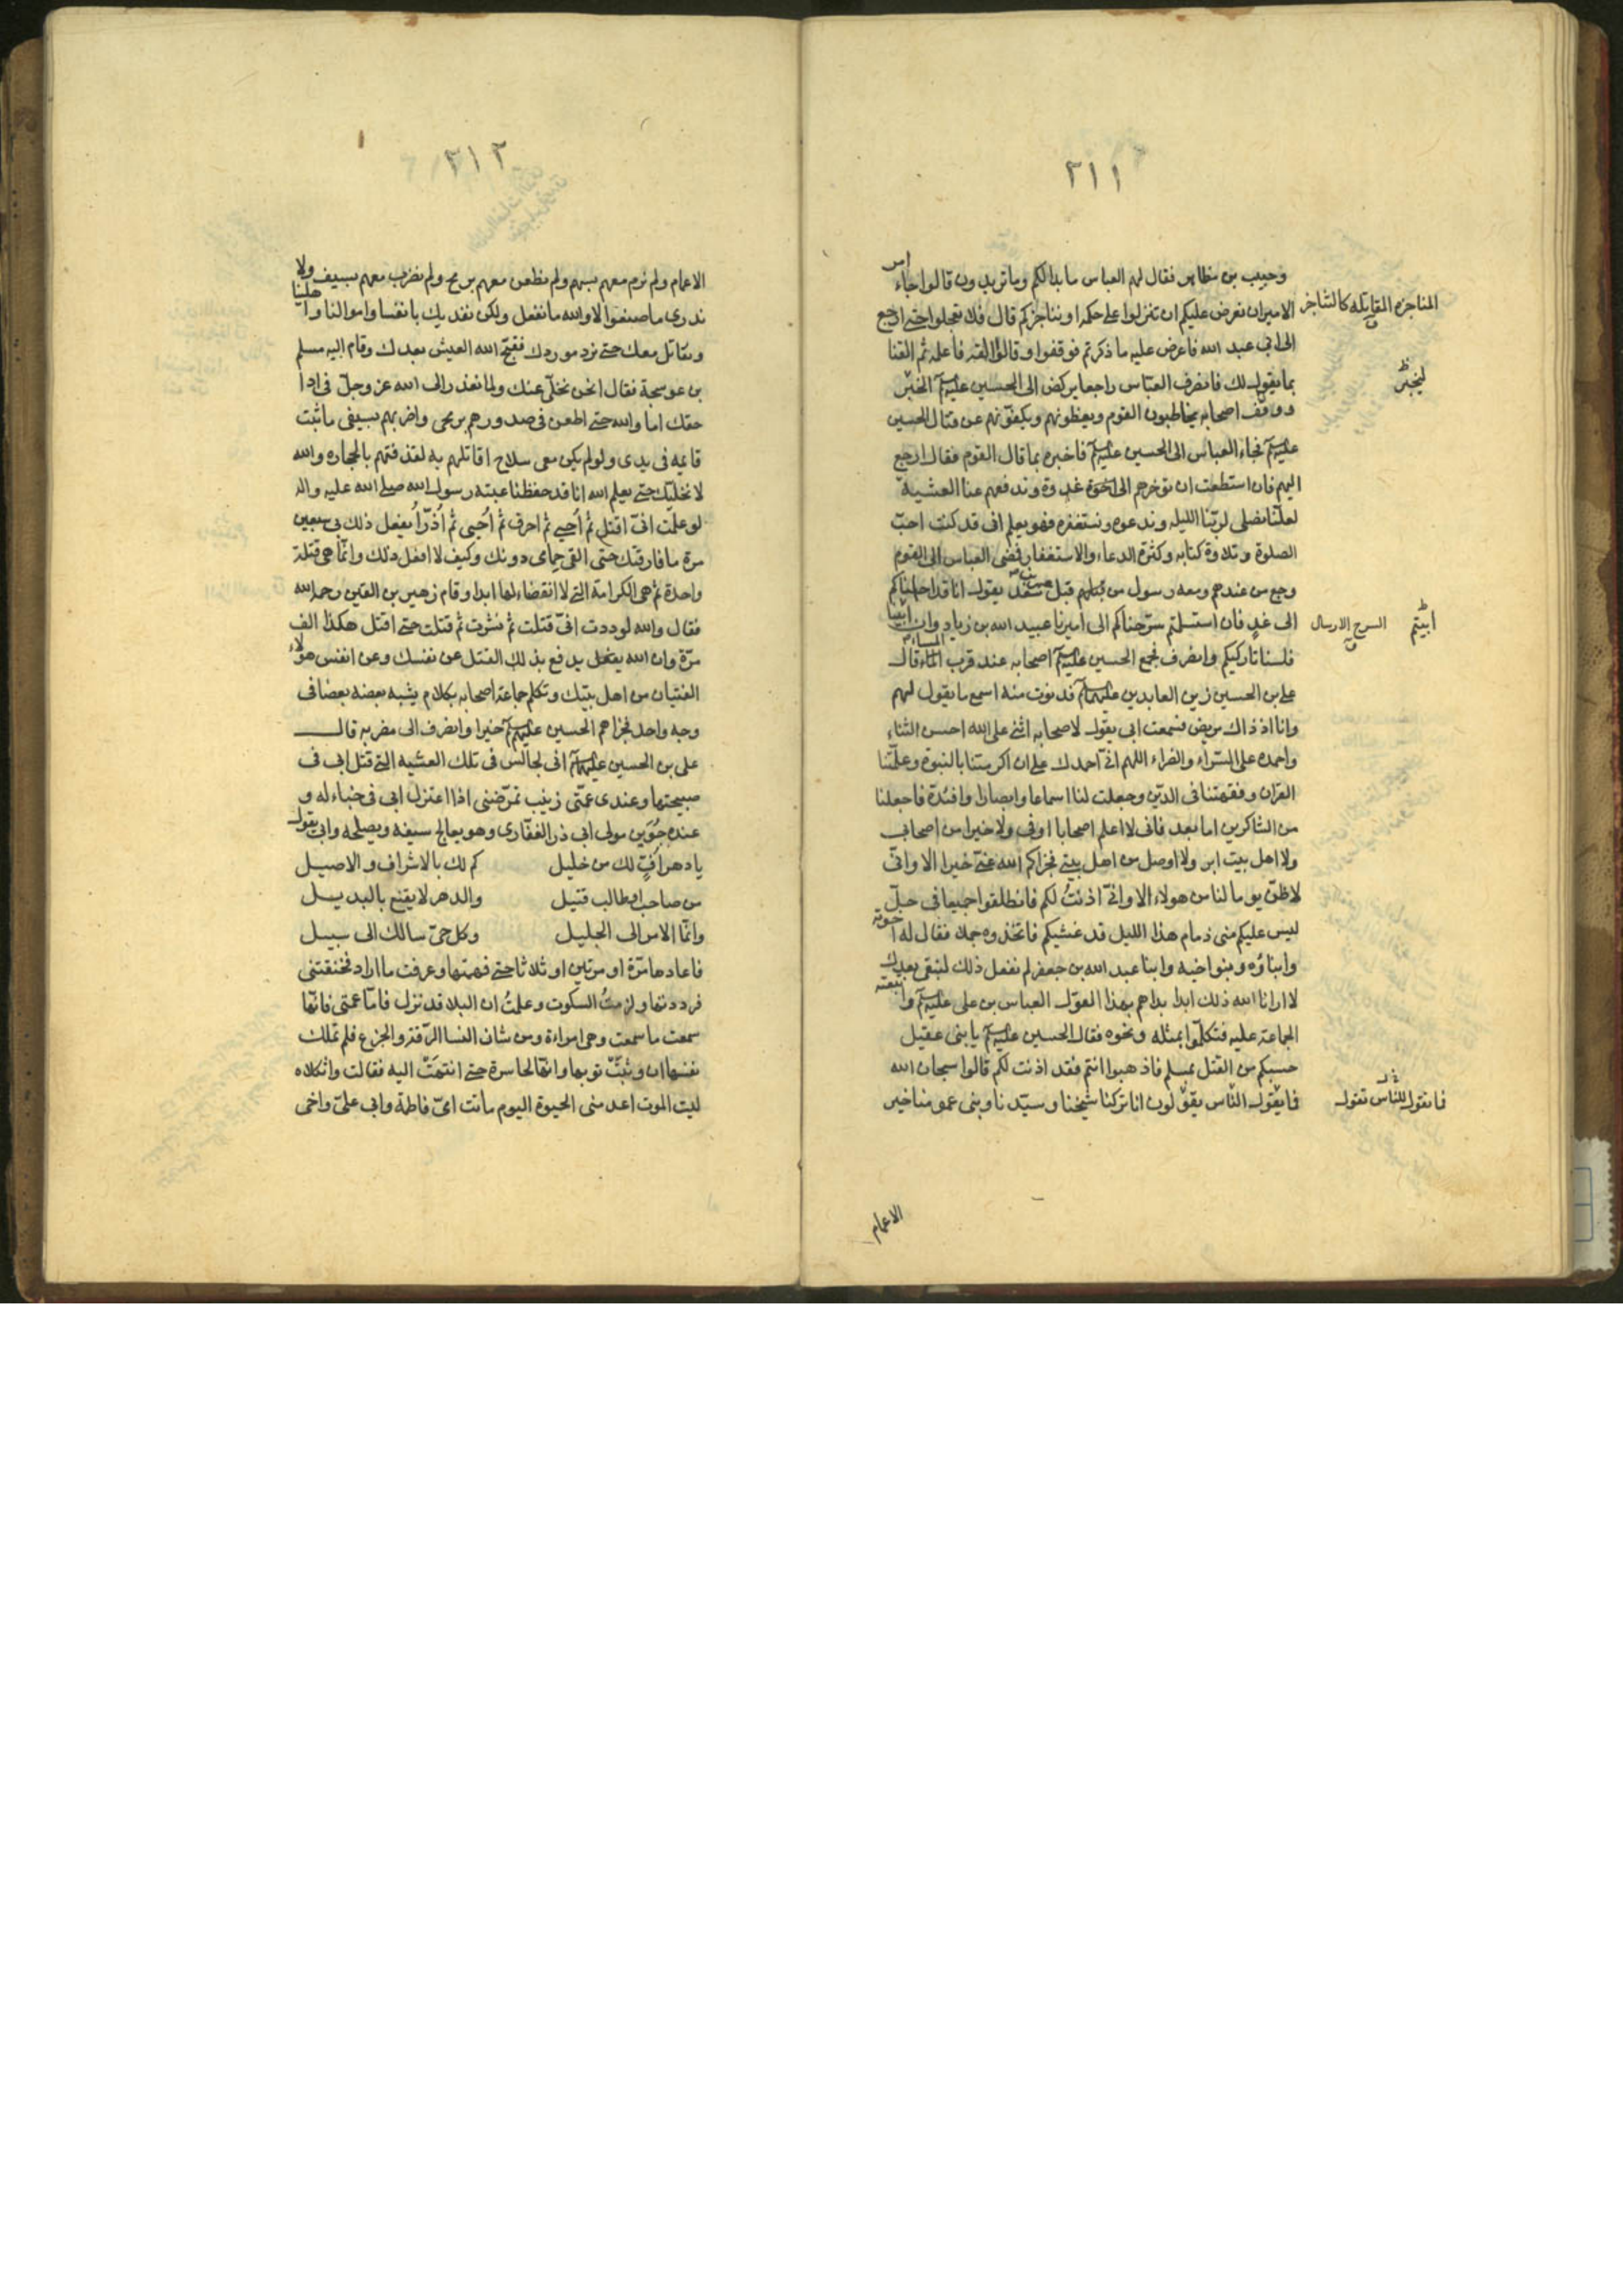 ٢١١
وحبيب بن مظاهر فقال لهم العباس ما بدا لكم وما تريدون قالوا جاء امر
الامير ان نعرض عليكم ان تنزلوا على حكمه او نناجزكم قال فلا تعجلوا حتى ارجع
المناجزة المقابلة كالتناجز ق
الى ابي عبد الله فاعرض عليه ما ذكرتم فوقفوا وقالوا القه فاعلمه ثم القنا
بما يقول لك فانصرف العباس راجعا يركض الى الحسين عليه السلم الخبر
ليخبر
ووقف اصحابه يخاطبون القوم ويعظونهم ويكفونهم عن قتال الحسين
عليه السلم فجاء العباس الى الحسين عليه السلم فاخبره بما قال القوم فقال ارجع
اليهم فان استطعت ان توخرهم الى غدوة وتدفعهم عنا العشية
لعلنا نصلى لربنا الليلة وندعوه ونستغفره فهو يعلم انى قد كنت احب
الصلوة وتلاوة كتابه وكثرة الدعاء والاستغفار فمضى العباس الى القوم
ورجع من عندهم ومعه رسول من قبل عمر بن سعد يقول انا قد اجلناكم
الى غد فان استسلمتم سرحناكم الى اميرنا عبيد الله بن زياد وان ابينا
ابيتم
السرح الارسال ق
فلسنا تاركيكم وانصرف فجمع الحسين عليه السلم اصحابه عند قرب الماء قال
المساء
على بن الحسين زين العابدين عليهما السلم فدنوت منه اسمع ما يقول لهم
وانا اذ ذاك مريض فسمعت ابى يقول لاصحابه اثنى على الله احسن الثناء
واحمده على السراء والضراء اللهم انى احمدك على ان اكرمتنا بالنبوة وعلمتنا
القران وفقهتنا فى الدين وجعلت لنا اسماعا وابصارا وافئدة فاجعلنا
من الشاكرين اما بعد فانى لا اعلم اصحابا اوفى ولا خيرا من اصحابى
ولا اهل بيت ابر ولا اوصل من اهل بيتى فجزاكم الله عنى خيرا الا وانى
لاظن يوما لنا من هولاء الا وانى اذنت لكم فانطلقوا جميعا فى حل
ليس عليكم منى ذمام هذا الليل قد غشيكم فاتخذوه جملا فقال له اخوته
وابناؤه وبنوا اخيه وابنا عبد الله بن جعفر لم نفعل ذلك لنبقى بعدك
لا ارانا الله ذلك ابدا بداهم بهذا القول العباس بن على عليه السلم واتبعته
الجماعة عليه فتكلموا بمثله ونحوه فقال الحسين عليه السلم يا بنى عقيل
حسبكم من القتل بمسلم فاذهبوا انتم فقد اذنت لكم قالوا سبحان الله
فما يقول الناس يقولون انا تركنا شيخنا وسيدنا وبنى عمومنا خير
فما نقول للناس نقول
الاعمام
٢١٢
الاعمام ولم نرم معهم بسهم ولم نطعن معهم برمح ولم نضرب معهم بسيف ولا
ندرى ما صنعوا لا والله ما نفعل ولكن نفديك بانفسنا واموالنا واهلينا
ونقاتل معك حتى نرد موردك فقبح الله العيش بعدك وقام اليه مسلم
بن عوسجة فقال انحن نخلى عنك ولما نعذر الى الله عز وجل فى ادا
حقك اما والله حتى اطعن فى صدورهم برمحى واضربهم بسيفى ما ثبت
قايمه فى يدى ولو لم يكن معى سلاح اقاتلهم به لقذفتهم بالحجاره والله
لا نخليك حتى يعلم الله انا قد حفظنا غيبة رسول الله صلى الله عليه واله
لو علمت انى اقتل ثم احيى ثم احرق ثم احيى ثم اذرا يفعل ذلك بى سبعين
مرة ما فارقتك حتى القى حمامى دونك وكيف لا افعل ذلك وانما هى قتلة
واحدة ثم هى الكرامة التى لا انقضاء لها ابدا وقام زهير بن القين رحمه الله
فقال والله لوددت انى قتلت ثم نشرت ثم قتلت حتى اقتل هكذا الف
مرة وان الله يفعل يدفع بذلك القتل عن نفسك وعن انفس هولاء
الفتيان من اهل بيتك وتكلم جماعة اصحابه بكلام يشبه بعضه بعضا فى
وجه واحد فجزاهم الحسين عليه السلم خيرا وانصرف الى مضربه قال
على بن الحسين عليهما السلم انى لجالس فى تلك العشيه التى قتل ابى فى
صبيحتها وعندى عمتى زينب تمرضنى اذا اعتزل ابى فى خباء له و
عنده جوين مولى ابى ذر الغفارى وهو يعالج سيفه ويصلحه وابى يقول
يا دهر اف لك من خليل كم لك بالاشراق والاصيل
من صاحب او طالب قتيل والدهر لا يقنع بالبديل
وانما الامر الى الجليل وكل حى سالك الى سبيل
فاعادها مرة او مرتين او ثلاثا حتى فهمتها وعرفت ما اراد فخنقتنى
فرددتها ولزمت السكوت وعلمت ان البلاء قد نزل فاما عمتى فانها
سمعت ما سمعت وهى امراءة ومن شان النسا الرقة والجزع فلم تملك
نفسها ان وثبت ثوبها وانها لحاسرة حتى انتهت اليه فقالت واثكلاه
ليت الموت اعدمنى الحيوة اليوم ماتت امى فاطمة وابى على واخى